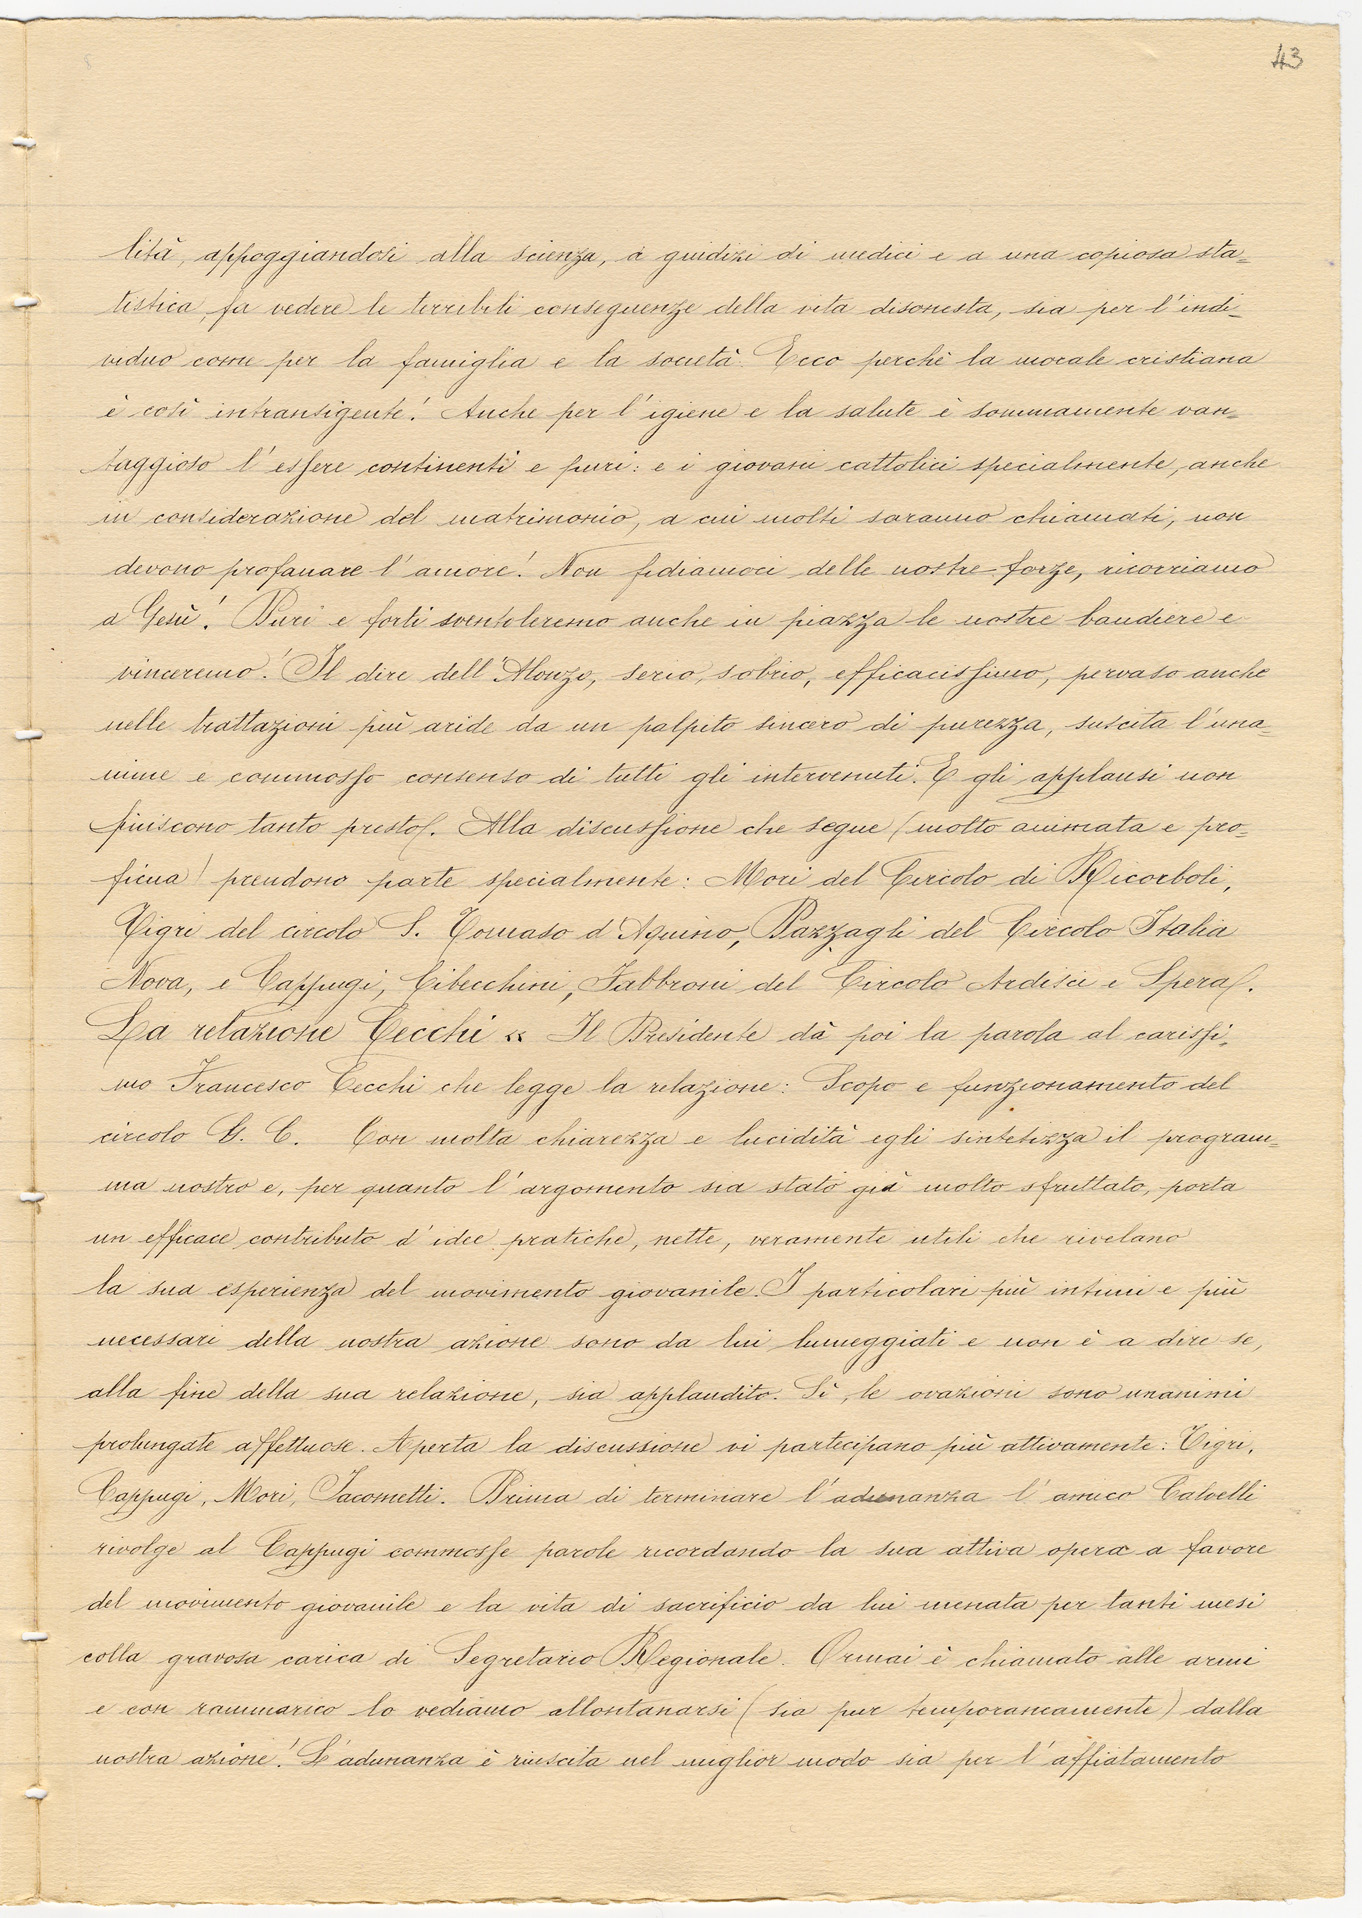 43
lità, appoggiandosi alla scienza, a giudizi di medici e a una copiosa sta=
tistica, fa vedere le terribili conseguenze della vita disonesta, sia per l'indi=
viduo come per la famiglia e la società. Ecco perchè la morale cristiana
è così intransigente! Anche per l'igiene e la salute è sommamente van=
taggioso l'essere continenti e puri: e i giovani cattolici specialmente, anche
in considerazione del matrimonio, a cui molti saranno chiamati, non
devono profanare l'amore! Non fidiamoci delle nostre forze, ricorriamo
a Gesù! Puri e forti sventoleremo anche in piazza le nostre bandiere e
vinceremo! Il dire dell'Alonzo, serio, sobrio, efficacissimo, pervaso anche
nelle trattazioni più aride da un palpito sincero di purezza, suscita l'una=
nime e commosso consenso di tutti gli intervenuti. E gli applausi non
finiscono tanto presto. Alla discussione che segue (molto animata e pro=
ficua) prendono parte specialmente: Mori del Circolo di Ricorboli,
Tigri del circolo S. Tomaso d'Aquino, Pazzagli del Circolo Italia
Nova, e Cappugi, Cibecchini, Fabbroni del Circolo Ardisci e Spera.
La relazione Cecchi « Il Presidente dà poi la parola al carissi=
mo Francesco Cecchi che legge la relazione: Scopo e funzionamento del
circolo G. C. Con molta chiarezza e lucidità egli sintetizza il program=
ma nostro e, per quanto l'argomento sia stato già molto sfruttato, porta
un efficace contributo d'idee pratiche, nette, veramente utili che rivelano
la sua esperienza del movimento giovanile. I particolari più intimi e più
necessari della nostra azione sono da lui lumeggiati e non è a dire se,
alla fine della sua relazione, sia applaudito. Sì, le ovazioni sono unanimi
prolungate affettuose. Aperta la discussione vi partecipano più attivamente: Tigri,
Cappugi, Mori, Iacometti. Prima di terminare l'adunanza l'amico Calvelli
rivolge al Cappugi commosse parole ricordando la sua attiva opera a favore
del movimento giovanile e la vita di sacrificio da lui menata per tanti mesi
colla gravosa carica di Segretario Regionale. Ormai è chiamato alle armi
e con rammarico lo vediamo allontanarsi (sia pur temporaneamente) dalla
nostra azione! L'adunanza è riuscita nel miglior modo sia per l'affiatamento